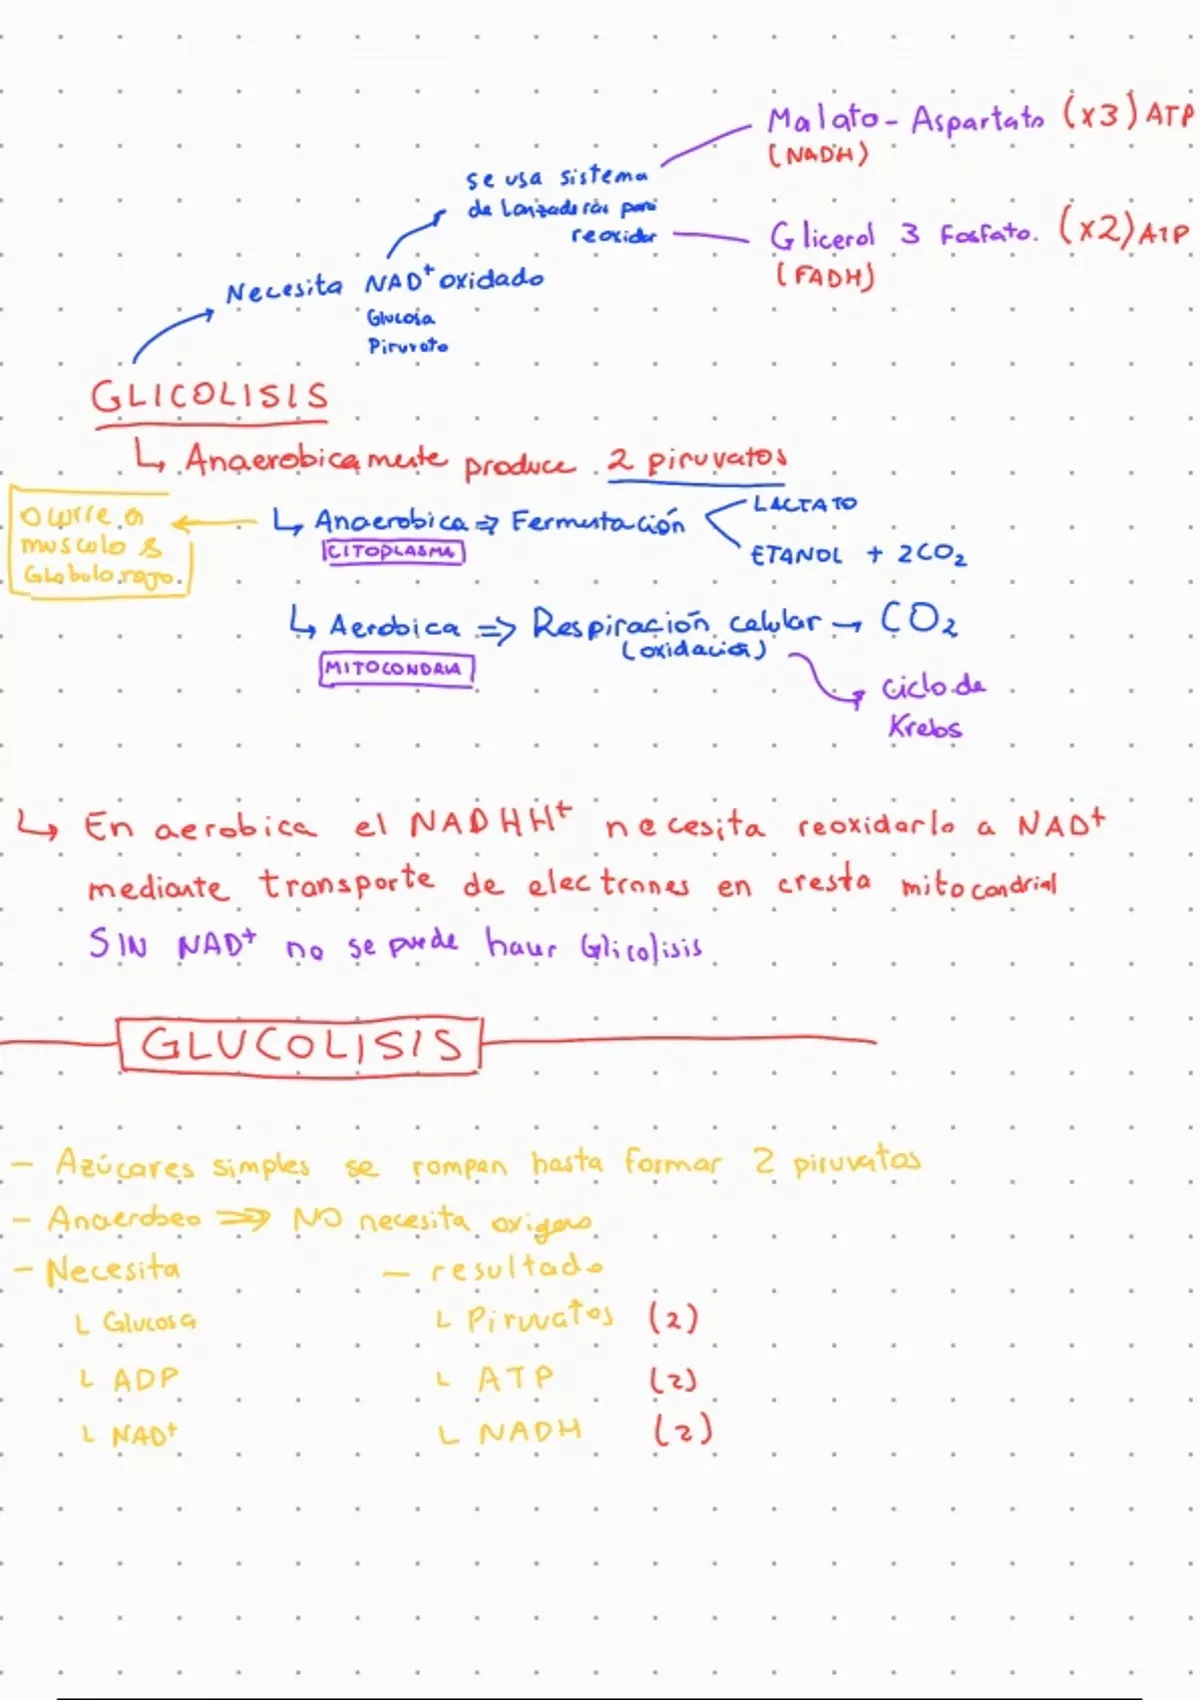 Malato - Aspartato (x3) ATP
(NADH)
se usa sistema
de lanzaderas para
reoxidar
Glicerol 3 Fosfato. (x2) ATP
(FADH)
Necesita NAD+ oxidado
Glucosa
Piruvato
GLICOLISIS
↳ Anaerobicamente produce 2 piruvatos
Ocurre en
musculo &
Globulo rojo.
↳ Anaerobica => Fermentación
CITOPLASMA
LACTATO
ETANOL + 2CO2
↳ Aerobica => Respiración celular → CO2
(oxidación)
MITOCONDRIA
ciclo de
Krebs
↳ En aerobica el NADHH+ necesita reoxidarlo a NAD+
mediante transporte de electrones en cresta mitocondrial
SIN NAD+ no se puede hacer Glicolisis
GLUCOLISIS
- Azúcares simples se rompen hasta formar 2 piruvatos
- Anaerobeo => NO necesita oxigeno
- Necesita
└ Glucosa
└ ADP
└ NAD+
- resultado
└ Piruvatos (2)
└ ATP (2)
└ NADH (2)